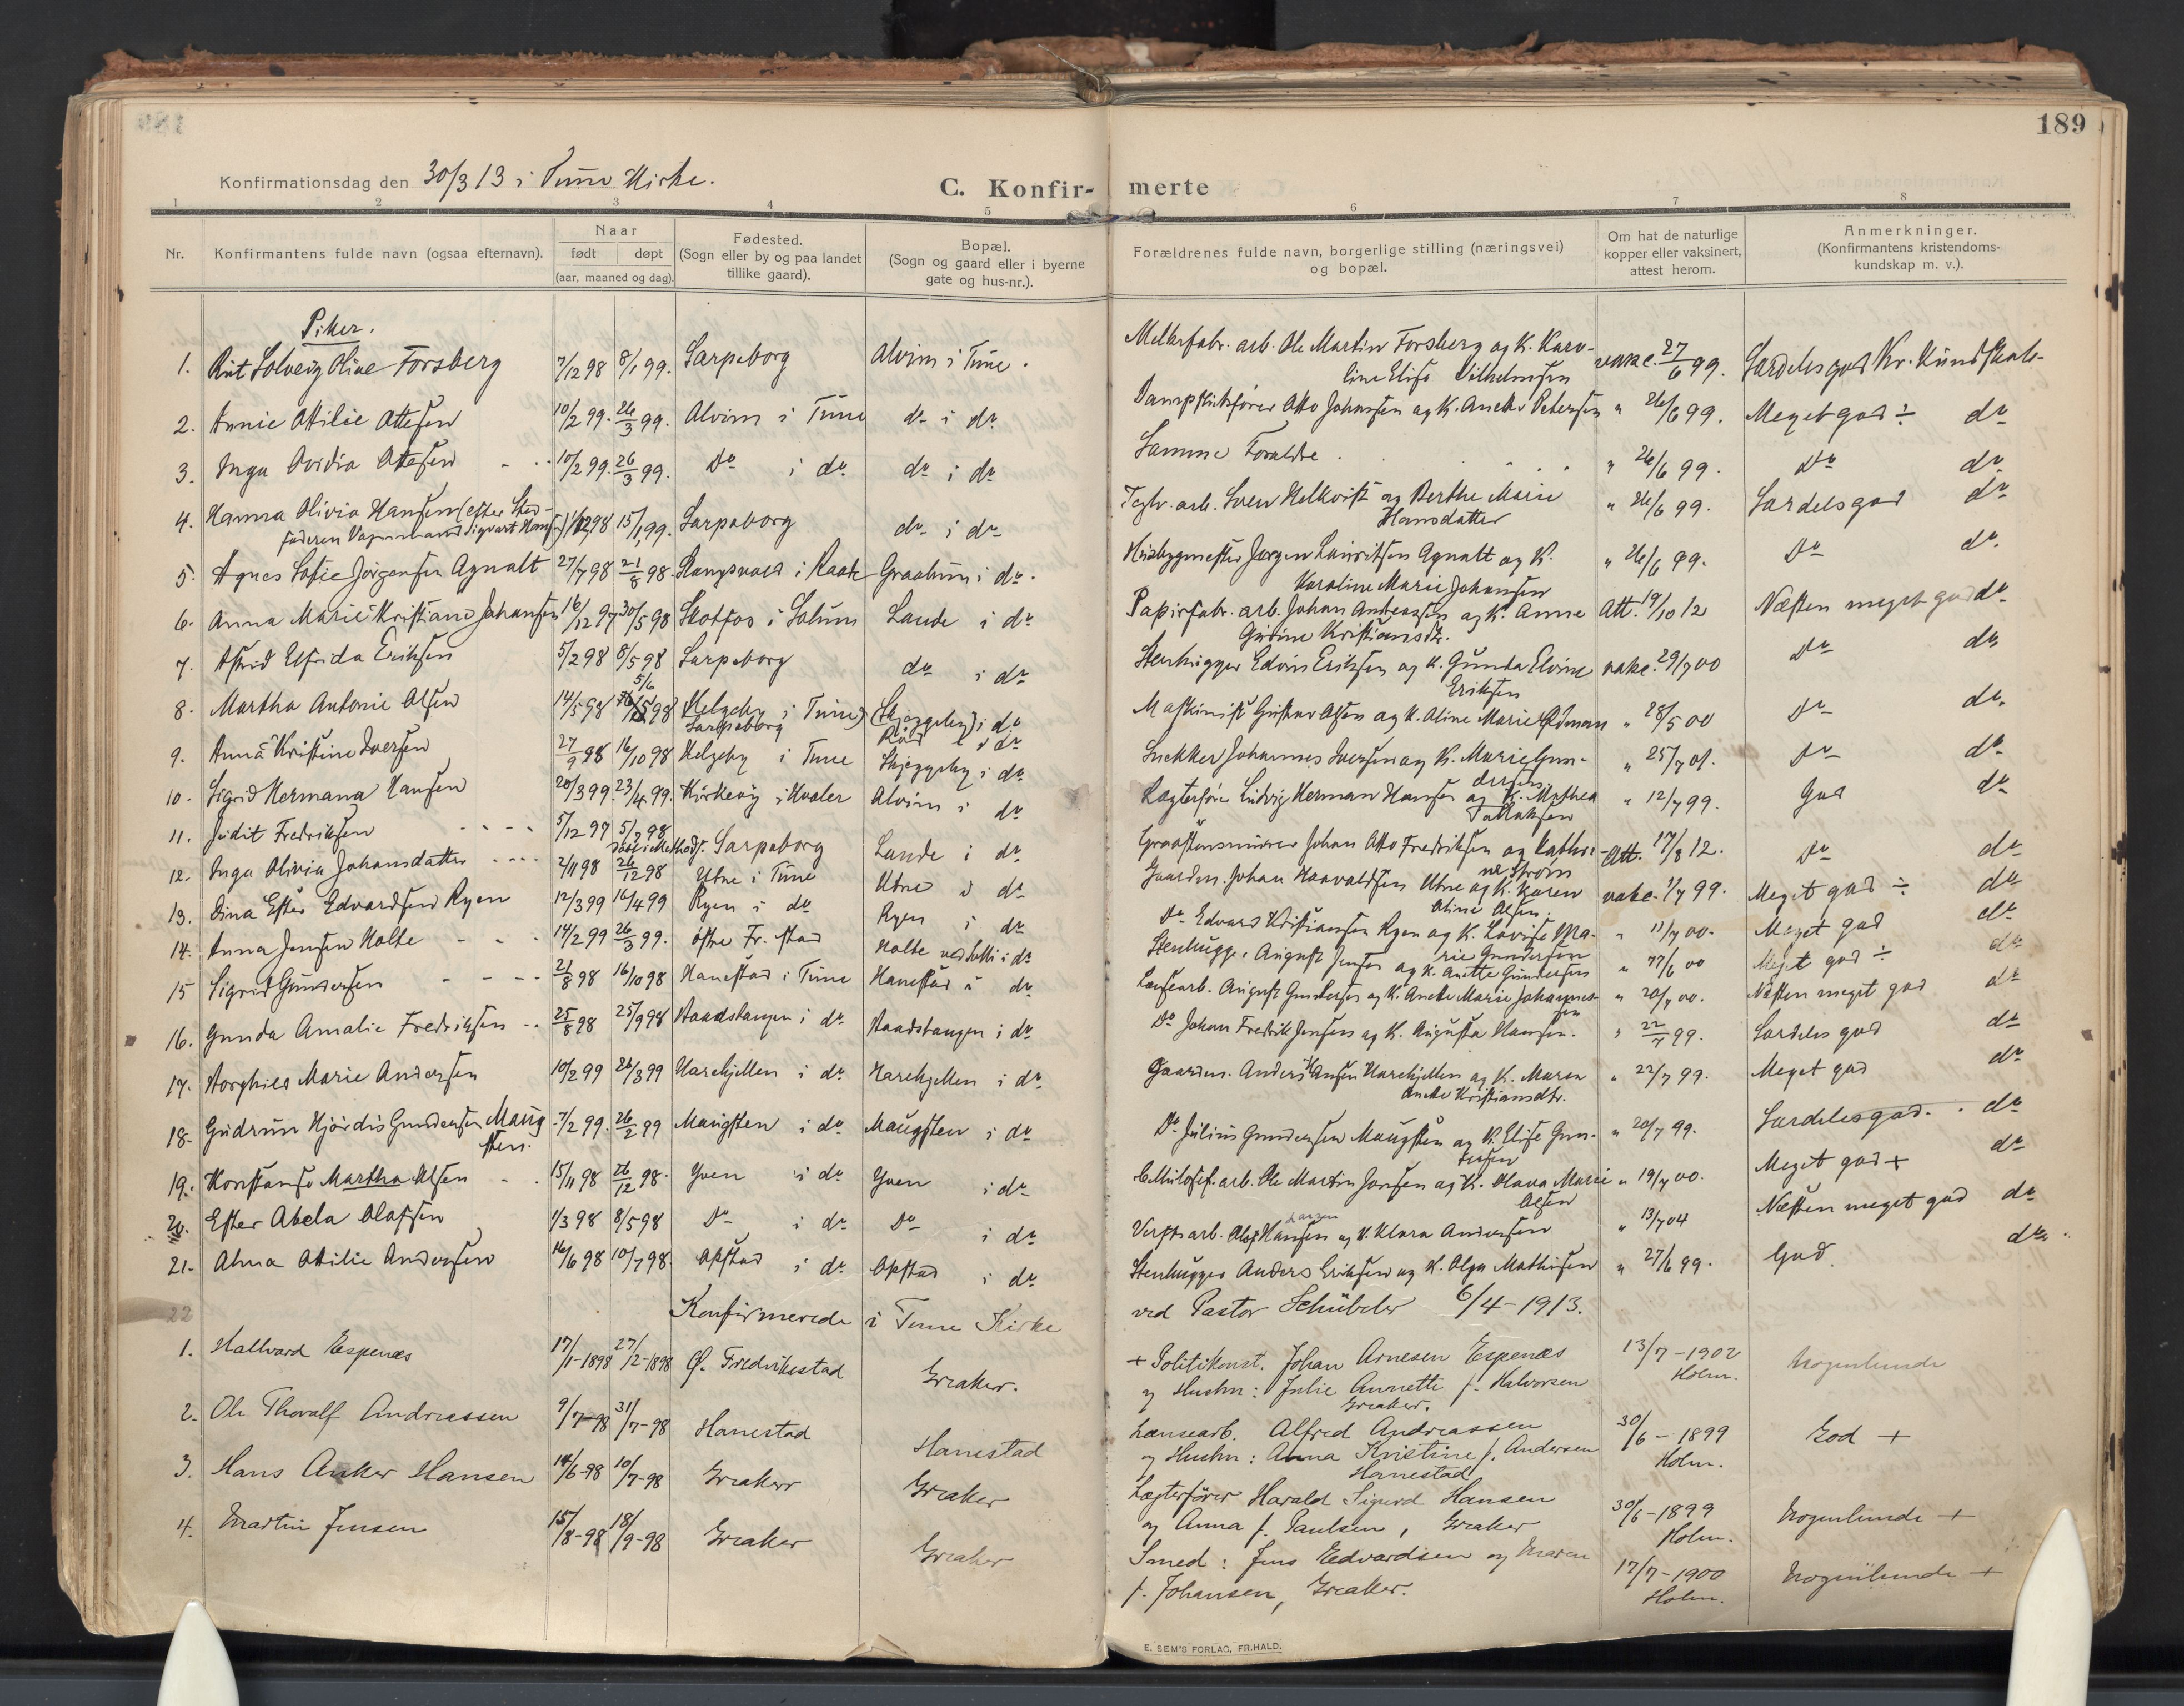 189
Konfirmationsdag den 30/3 13 i Tune Kirke.
C. Konfir- merte
1 2 3 4 5 6 7 8
Nr. Konfirmantens fulde navn (ogsaa efternavn). Naar født døpt (aar, maaned og dag). Fødested. (Sogn eller by og paa landet tillike gaard). Bopæl. (Sogn og gaard eller i byerne gate og hus-nr.). Forældrenes fulde navn, borgerlige stilling (næringsvei) og bopæl. Om hat de naturlige kopper eller vaksinert, attest herom. Anmerkninger. (Konfirmantens kristendoms- kundskap m. v.).
Piker.
1. Rut Solveig Olive Forsberg 7/12 98 8/1 99. Sarpsborg Alvim i Tune. arb. Ole Martin Forsberg og K. Karo- vakc. 27/6 99. Særdeles god Kr. Kundskab
line Elise Vilhelmsen
2. Annie Otilie Ottesen 10/2 99. 26/3 99. Alvim i Tune do i do Otto Johansen og K. Anette Petersen " 26/6 99. Meget god ÷ do
3. Inga Ovidia Ottesen 10/2 99. 26/3 99. Do i do do i do Samme Forældre " 26/6 99. Do do
4. Hanna Olivia Hansen (efter Sted- 98 15/1 99. Sarpsborg do i do Teglv. arb. Soren Helkvist og Berthe Marie " 26/6 99. Særdeles god do
faderen Vognmand Sigvart Hansen) Hansdatter
5. Agnes Sofie Jørgensen Agnalt 27/7 98 21/8 98. i Raade Graalum i do. Husbygmester Jørgen Lauritsen Agnalt og K. " 26/6 99. Do do.
Karoline Marie Johansen
6. Anna Marie Kristiane Johansen 16/12 97 30/5 98 Skotfos i Solum Lande i do Papirfabr. arb. Johan Andreassen og K. Anne Att. 19/10 12 Næsten meget god do
Gurine Kristiansdtr.
7. Astrid Elfrida Eriksen 5/2 98 8/5 98 Sarpsborg do i do Stenhugger Edvin Eriksen og K. Gunda Elvine vakc. 29/7 00 Do do
Eriksen
8. Martha Antonie Olsen 14/5 98 5/6 98 (Helgeby i Tune) Sarpsborg (Skjeggeby) i do Maskinist Gustav Olsen og K. Oline Marie Ødman " 28/5 00 Do do.
9. Anna Kristine Iversen 27/9 98 16/10 98 Helgeby i Tune Skjeggeby i do Snekker Johannes Iversen og K. Marie Gun- " 25/7 01. Do do
dersen
10. Sigrid Hermana Hansen 20/3 99. 23/4 99. Kirkeøy i Hvaler Alvim i do Lægterfører Ludvig Herman Hansen og K. Mathea " 12/7 99. God do
11. Judit Fredriksen 5/12 97 5/2 98 Sarpsborg Lande i do Graastensmurer Johan Otto Fredriksen og Kathr- Att. 17/3 12. Do do
Strøm
12. Inga Olivia Johansdatter 2/11 98 26/12 98 Utne i Tune Utne i do Gaardm. Johan Haavaldsen Utne og K. Karen vakc. 1/7 99. Meget god ÷ do
Oline Olsen
13. Dina Ester Edvardsen Ryen 12/3 99 16/4 99 Ryen i do Ryen i do Do Edvard Kristiansen Ryen og K. Lovise Ma- " 11/7 00. Meget god do
rie Gundersen
14. Anna Jensen Holte 14/2 99 26/3 99. Østre Fr. stad Holte i do Stenhugger August Jensen og K. Anette Gundersen Meget god ÷ do
15 Sigrid Gundersen 21/8 98 16/10 98 Hanestad i Tune Hanestad i do Lensearb. August Gundersen og K. Anette Marie Johannes- " 20/7 00. Næsten meget god do
sen
16. Gunda Amalie Fredriksen 25/8 98 25/9 98 i do i do Do Johan Fredrik Jensen og K. Augusta Hansen. " 22/7 99. Særdeles god do
17. Borghild Marie Andersen 10/2 99 26/3 99 Harekjellen i do Harekjellen i do. Gaardm. Anders Hansen Harekjellen og K. Maren " 22/7 99. Meget god do
Anette Kristiansdtr.
18. Gudrun Hjørdis Gundersen Maug- 7/2 99. 26/2 99 Maugsten i do Maugsten i do Do Julius Gundersen Maugsten og K. Elise Gun- " 20/7 99. Særdeles god. do
sten. dersen
19. Konstanse Martha Olsen 15/11 98 26/12 98. Yven i do Yven i do Cellulosef. arb. Ole Martin Jonsen og K. Olava Marie " 19/7 00. Meget god + do
Olsen
20. Ester Abela Olafsen 1/3 98 8/5 98 Do i do Do i do Verftsarb. Olaf Hansen og K. Klara Andersen " 13/7 04 Næsten meget god do
Larsen
21. Alma Otilie Andersen 16/6 98 10/7 98. Opstad i do Opstad i do Stenhugger Anders Eriksen og K. Olga Mathisen " 27/6 99. God. do
22
Konfirmerede i Tune Kirke ved Pastor Schübeler 6/4 - 1913.
1. Hallvard Espenæs 17/1-1898 27/12-1898 Ø. Fredrikstad Greaker. + Politikonst. Johan Arnesen Espenæs 13/7-1902 Nogenlunde
og Hustru: Julie Annette f. Halvorsen Holm.
Greaker.
2. Ole Thoralf Andreassen 9/7-98 31/7-98 Hanestad Hanestad Lensearb. Alfred Andreassen 30/6-1899 God +
og Hustru: Anna Kristine f. Andersen Holm.
Hanestad
3. Hans Anker Hansen 14/6-98 10/7-98 Greaker Greaker Lægterfører Harald Sigurd Hansen 30/6-1899 Nogenlunde +
og Anna f. Paulsen, Greaker Holm.
4. Martin Jensen 15/8-98 18/9-98 Greaker Greaker Smed: Jens Edvardsen og Maren 17/7-1900 Nogenlunde +
f. Johansen, Greaker. Holm.
E. SEM'S FORLAG, FR.HALD.